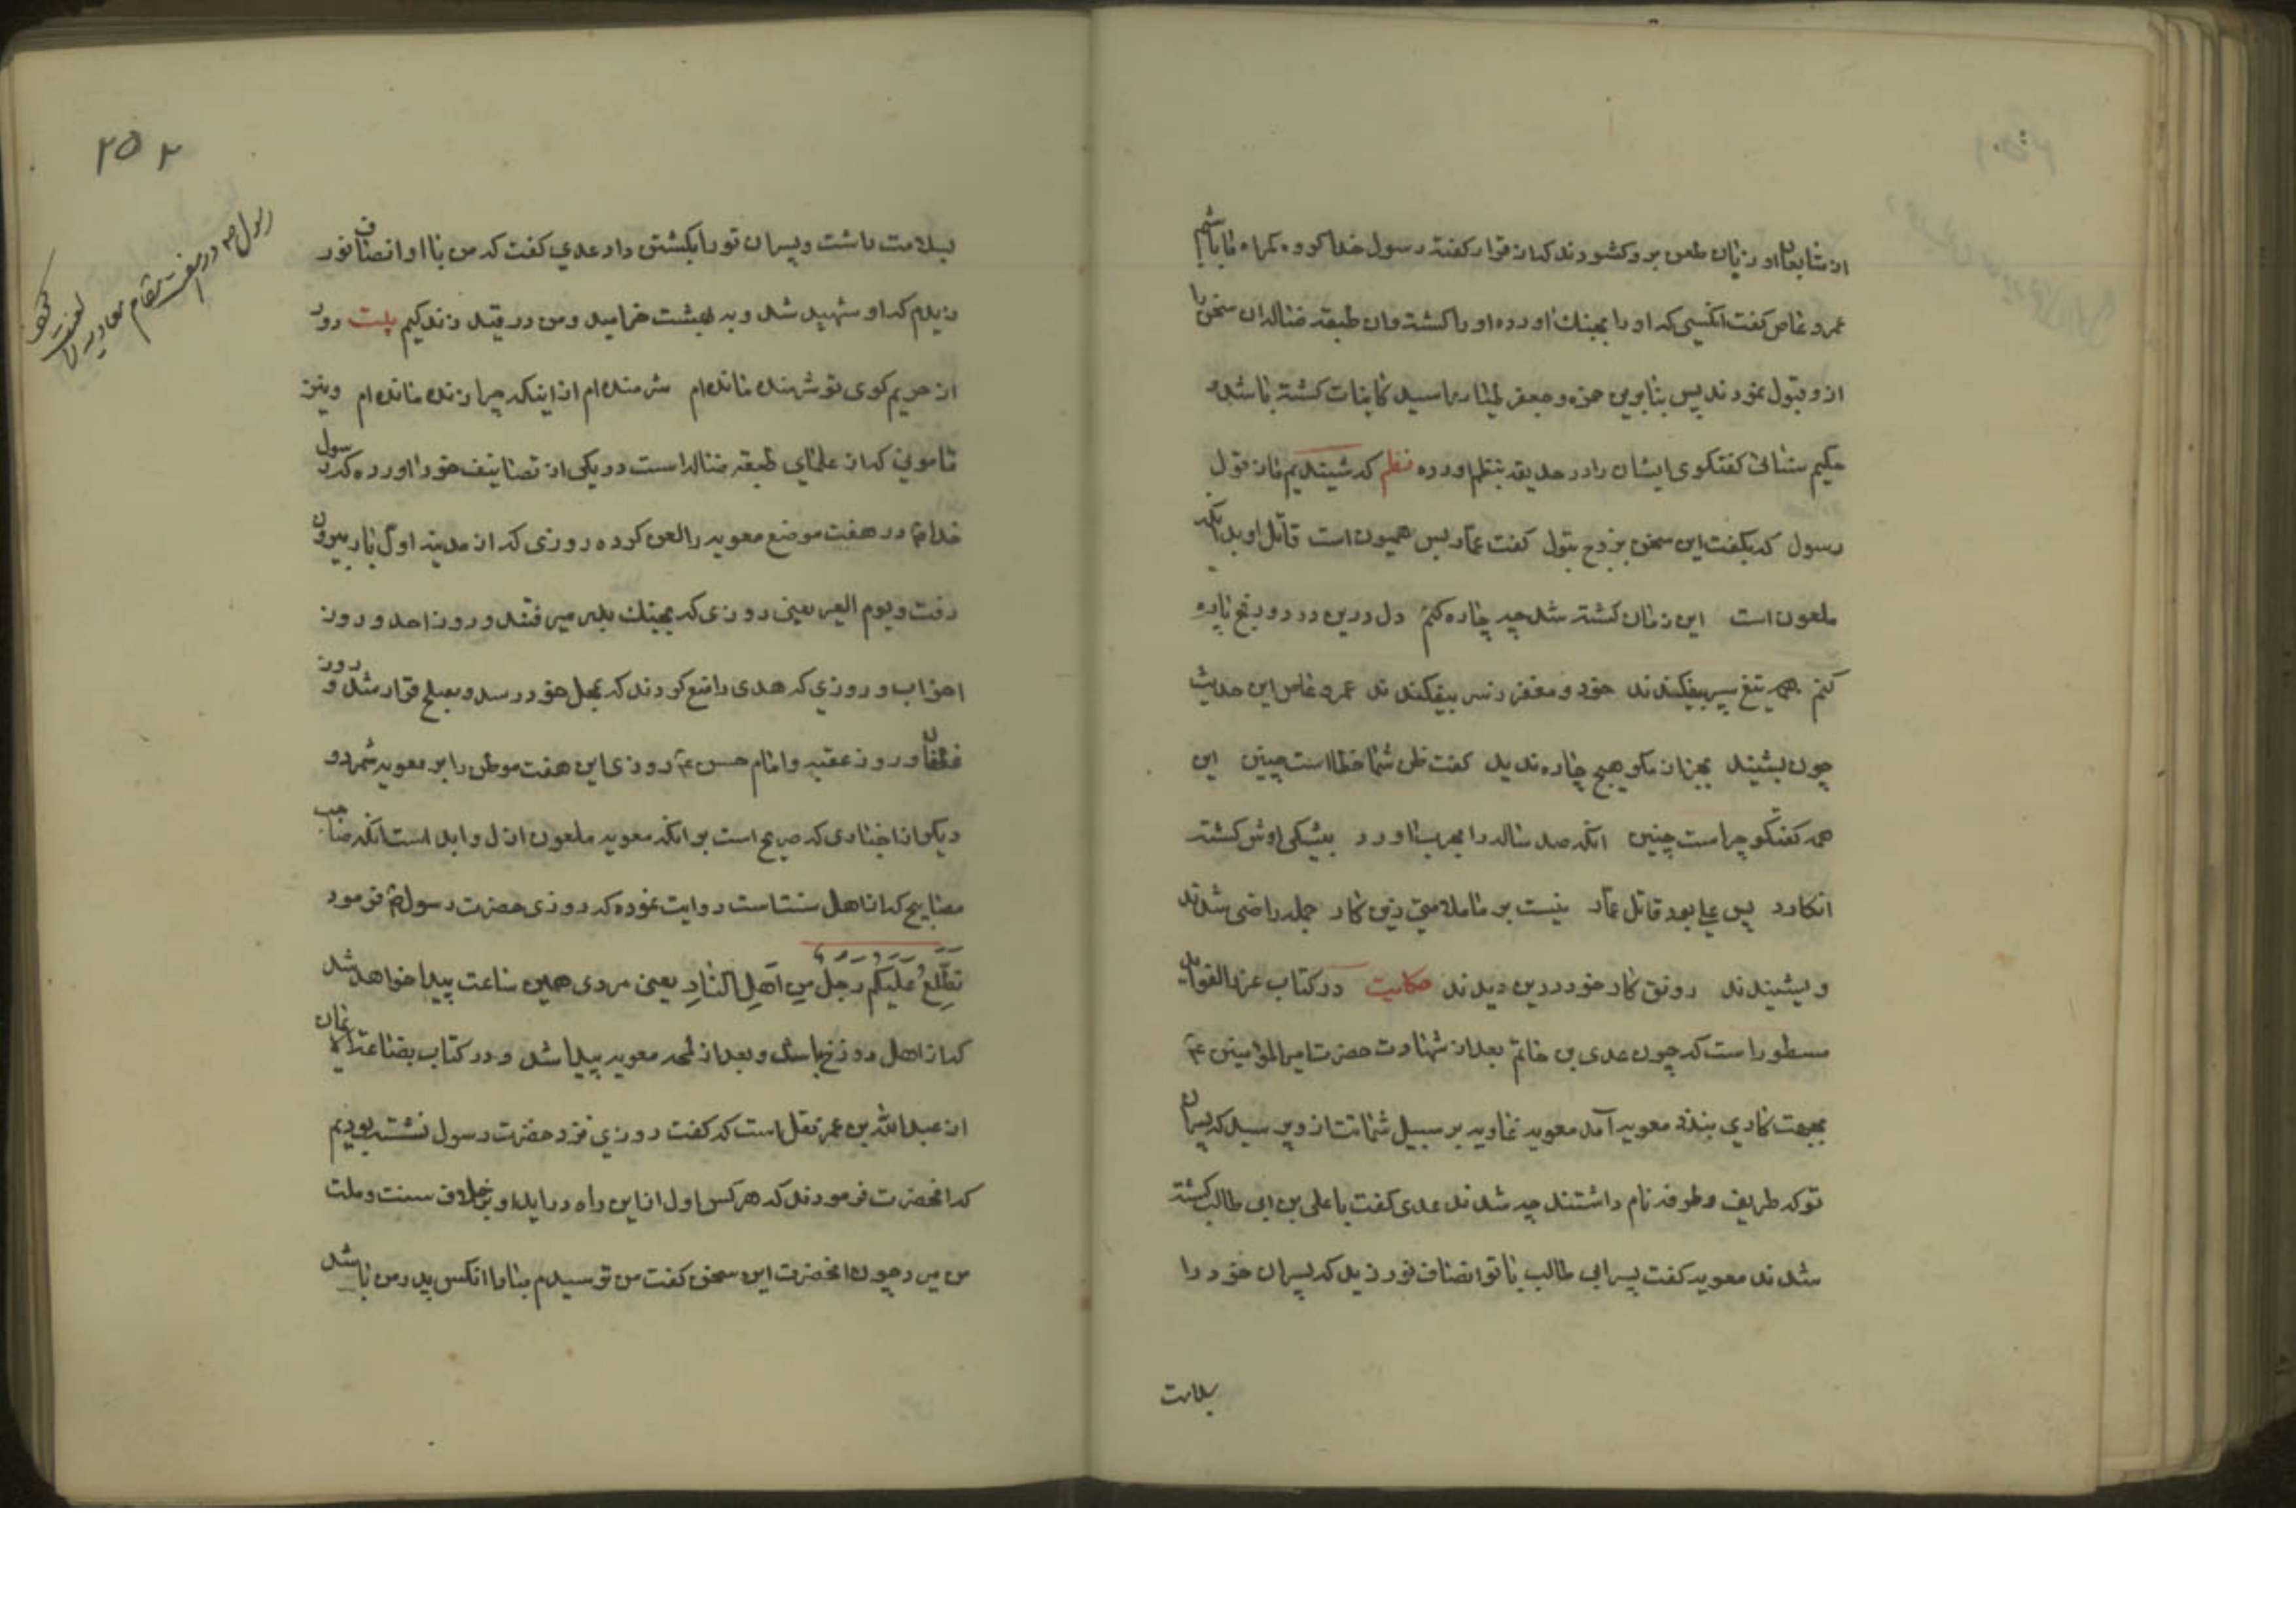 از متابعان او زبان طعن برو کشودند که از قرار کفته رسول خدا کروه کمراه ما باشیم
عمرو عاص کفت انکسی که او را بجنك آورده او را کشته وان طبقه ضاله ان سخن را
ازو قبول نمودند پس بنابرین حمزه و جعفر طیار را سید کاینات کشته باشد و
حکیم سنائی کفتکوی ایشان را در حدیقه بنظم اورده نظم که شنیدیم ما ز قول
رسول که بکفت این سخن بزوج بتول کفت عمار پس همیون است قاتل او بدانکه
ملعون است این زمان کشته شد چه چاره کنم دل درین درد و رنج پاره
کنم همه تیغ سپر بیفکندند خود و مغفر ز سر بیفکندند عمرو عاص این حدیث
چون بشنید بجز از مکر هیچ چاره ندید کفت ظن شما خطا است چنین این
همه کفتکو چراست چنین انکه صد ساله را بحرب اورد بیشکی اوش کشته
انکارد پس علی بود قاتل عمار نیست بر ما ملامتی زین کار جمله راضی شدند
و بشنیدند رونق کار خود درین دیدند حکایت در کتاب غرر الفواید
مسطور است که چون عدی بن حاتم بعد از شهادت حضرت امیر المؤمنین ع
بجهت کاری بنزد معویه آمد معویه غاویه بر سبیل شماتت از وی پرسید که پسران
تو که طریف و طرفه نام داشتند چه شدند عدی کفت با علی بن ابی طالب کشته
شدند معویه کفت پسر ابی طالب با تو انصاف نورزید که پسران خود را
بسلامت
۲۵۲
رسول ص در هفت مقام معاویه را
لعنت کرده
بسلامت داشت و پسران تو را بکشتن داد عدی کفت که من با او انصاف نور
زیدم که او شهید شد و به بهشت خرامید و من در قید زندکیم بیت دور
از حریم کوی تو شرمنده مانده ام شرمنده ام از اینکه چرا زنده مانده ام و نیز
مامونی که از علمای طبقه ضاله است در یکی از تصانیف خود اورده که رسول
خدا ص در هفت موضع معویه را لعن کرده روزی که از مدینه اول بار بیرون
رفت و یوم العیر یعنی روزی که بجنك بدر میرفتند و روز احد و روز
احزاب و روزی که هدی را منع کردند که بمحل خود رسد و بصلح قرار شد و روز
غطفان و روز عقبه و امام حسن ع روزی این هفت موطن را بر معویه شمرد و
دیکر از اخباری که صریح است بر انکه معویه ملعون ازل و ابد است انکه صاحب
مصابیح که از اهل سنت است روایت نموده که روزی حضرت رسول ص فرمود
تطلع علیکم رجل من اهل النار یعنی مردی همین ساعت پیدا خواهد شد
که از اهل دوزخ باشد و بعد از لمحه معویه پیدا شد و در کتاب بضاعة الایمان
از عبد الله بن عمر نقل است که کفت روزی نزد حضرت رسول نشسته بودیم
که انحضرت فرمودند که هر کس اول از این راه در اید او بر خلاف سنت و ملت
من میرد چون انحضرت این سخن کفت من ترسیدم مبادا انکس پدر من باشد